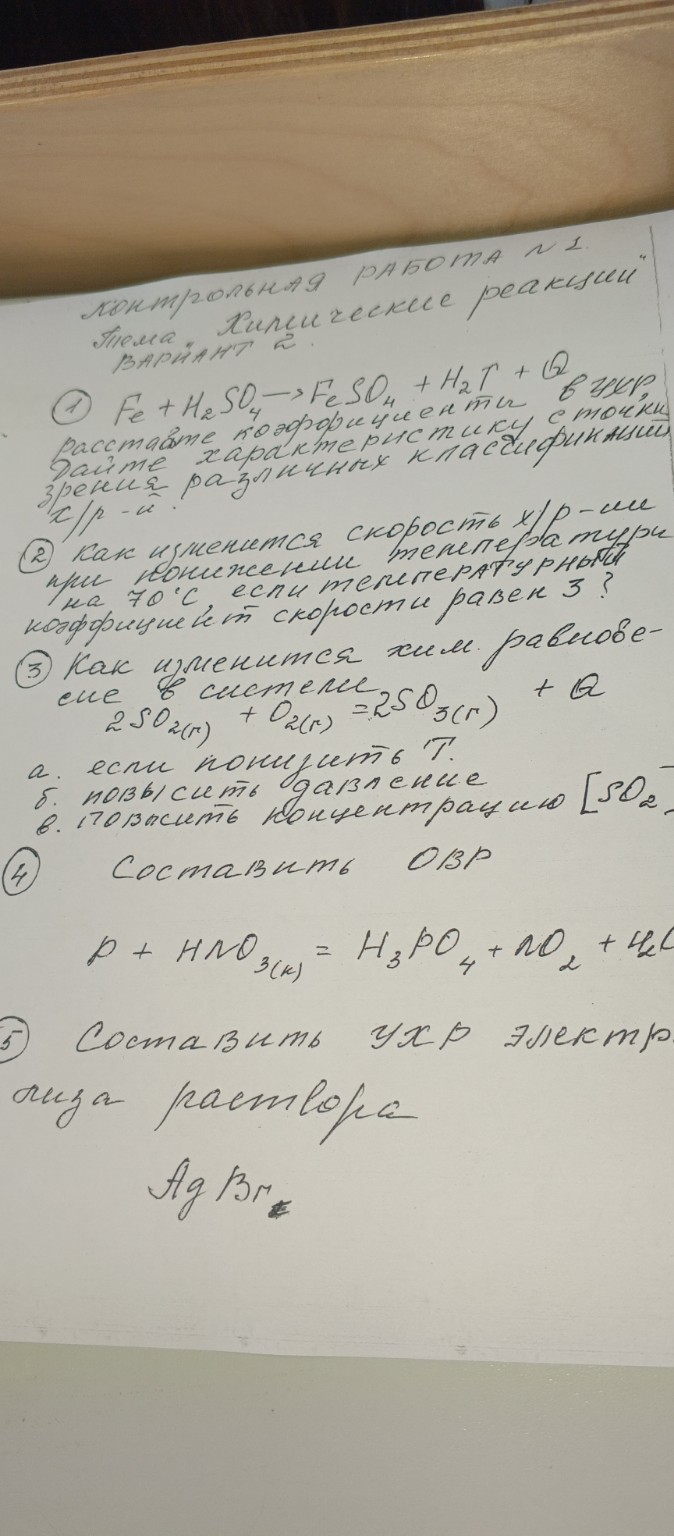 КОНТРОЛЬНАЯ РАБОТА N 1.
Тема „Химические реакции"
ВАРИАНТ 2.
① Fe + H₂SO₄ → FeSO₄ + H₂↑ + Q
расставьте коэффициенты в УХР,
дайте характеристику с точки
зрения различных классификаций
х/р-й.
② Как изменится скорость х/р-ии
при понижении температуры
на 70°C, если температурный
коэффициент скорости равен 3?
③ Как изменится хим. равнове-
сие в системе
2SO₂(г) + O₂(г) = 2SO₃(г) + Q
а. если понизить T.
б. повысить давление
в. повысить концентрацию [SO₂]
④ Составить ОВР
P + HNO₃(к) = H₃PO₄ + NO₂ +
5 Составить УХР электр
лиза раствора
AgBr